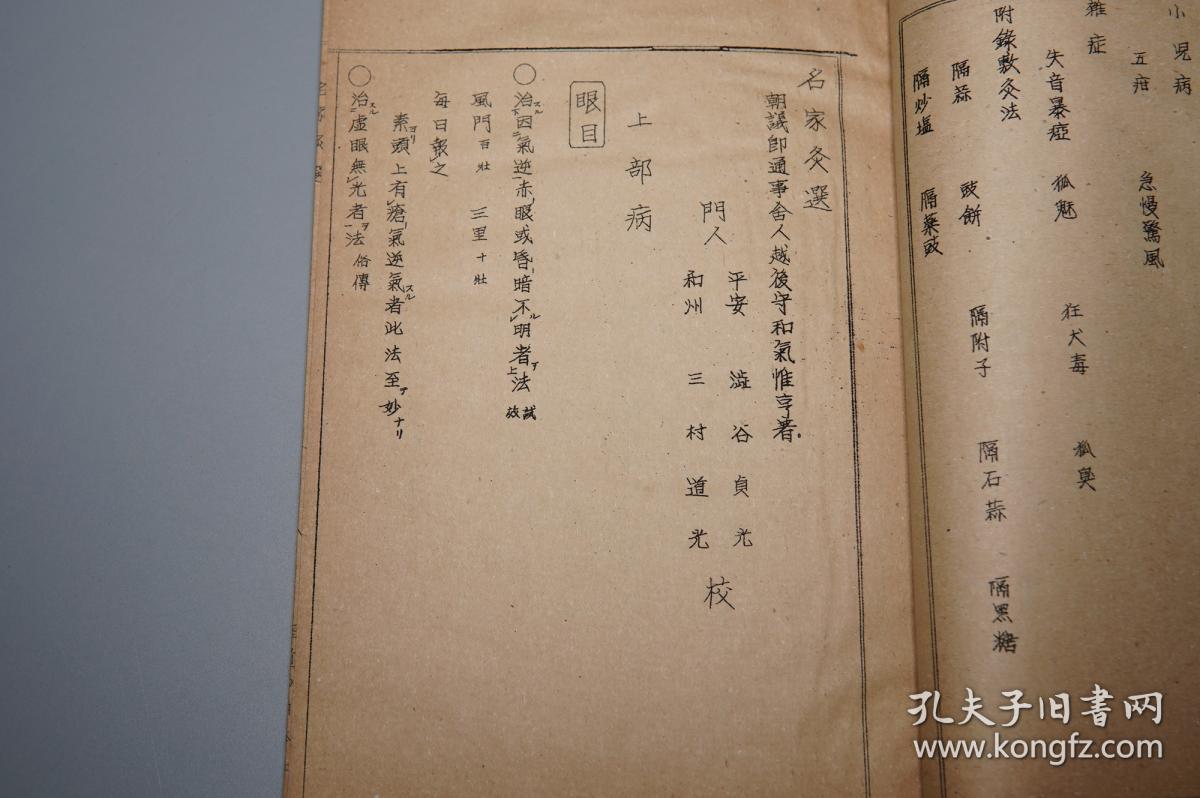 小児病
五疳　急慢驚風
雜症
失音暴瘂　狐魅　狂犬毒　狐臭
附錄敷灸法
隔蒜　豉餅　隔附子　隔石蒜　隔黒糖
隔炒塩　隔藥豉
名家灸選
朝議郎通事舍人越後守和氣惟亨著
門人　平安　澁谷貞光
和州　三村道光　校
上部病
眼目
○治スル因テニ氣逆ニ赤眼或昏暗不ルレ明者ヲ上法　試效
風門百壯　三里十壯
每日報レ之
素ヨリ頭上有レ瘡氣逆氣スル者此法至テ妙ナリ
○治スル虛眼無レ光者ヲ一法　俗傳
孔夫子旧书网
www.kongfz.com